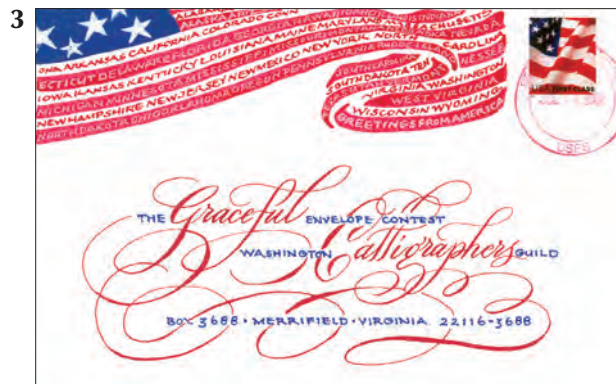 3
ONA ARKANSAS CALIFORNIA COLORADO CONN
ECTICUT DELAWARE FLORIDA GEORGIA HAWAII
IOWA KANSAS KENTUCKY LOUISIANA MAINE MARYLAND MASSACHUSETTS
MICHIGAN MINNESOTA MISSISSIPPI MISSOURI MONTANA NEBRASKA NEVADA
NEW HAMPSHIRE NEW JERSEY NEW MEXICO NEW YORK NORTH CAROLINA
NORTH DAKOTA OHIO OKLAHOMA OREGON PENNSYLVANIA RHODE ISLAND
SOUTH CAROLINA
SOUTH DAKOTA TENNESSEE
VERMONT
VIRGINIA WASHINGTON
WEST VIRGINIA
WISCONSIN WYOMING
GREETINGS FROM AMERICA
USA FIRST CLASS
USPS
THE Graceful ENVELOPE CONTEST
WASHINGTON Calligraphers GUILD
BOX 3688 • MERRIFIELD • VIRGINIA 22116-3688